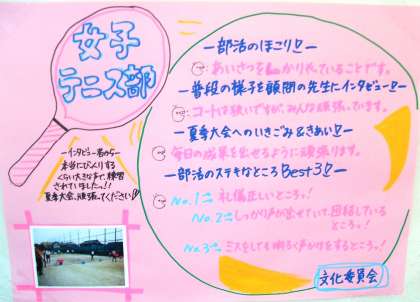 女子
テニス部
ー部活のほこり!ー
あいさつをしっかりやっていることです。
ー普段の様子を顧問の先生にインタビュー!ー
コートは狭いですが、みんな頑張っています。
ー夏季大会へのいきごみ&きあい!ー
毎日の成果を出せるように頑張ります。
ー部活のステキなところBest3!ー
No.1→ 礼儀正しいところっ!
No.2→ しっかり声が出せていて、団結している
ところっ!
No.3→ ミスをしても明るく声かけをするところっ!
ーインタビュー者からー
本当にびっくりする
くらい大きな声で、練習
されていましたっ!!
夏季大会、頑張ってください!
文化委員会